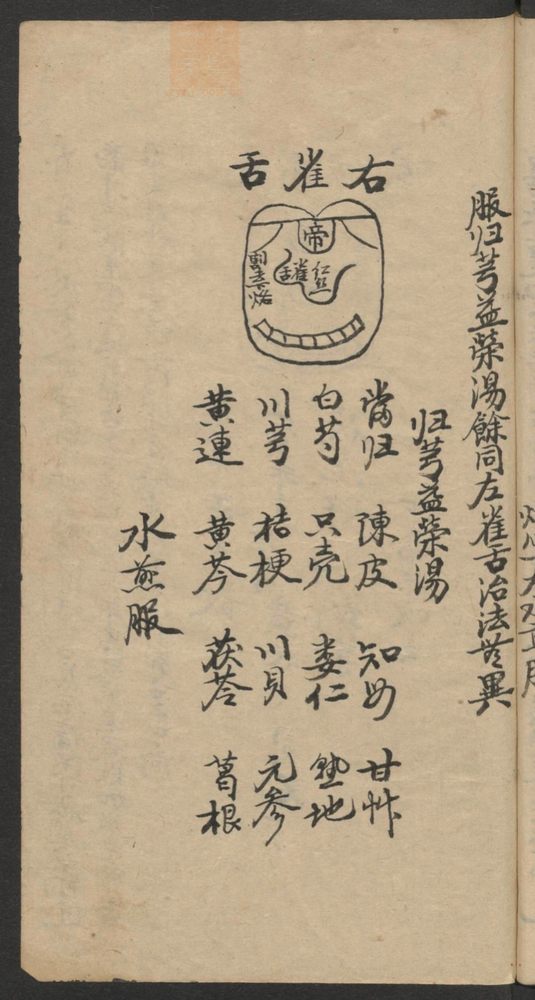 服归芎益荣湯餘同左雀舌治法無異
右雀舌
帝
红
雀舌
归芎益荣湯
當归 陳皮 知母 甘艸
白芍 只壳 蒌仁 熟地
川芎 桔梗 川貝 元参
黄連 黄芩 茯苓 葛根
水煎服